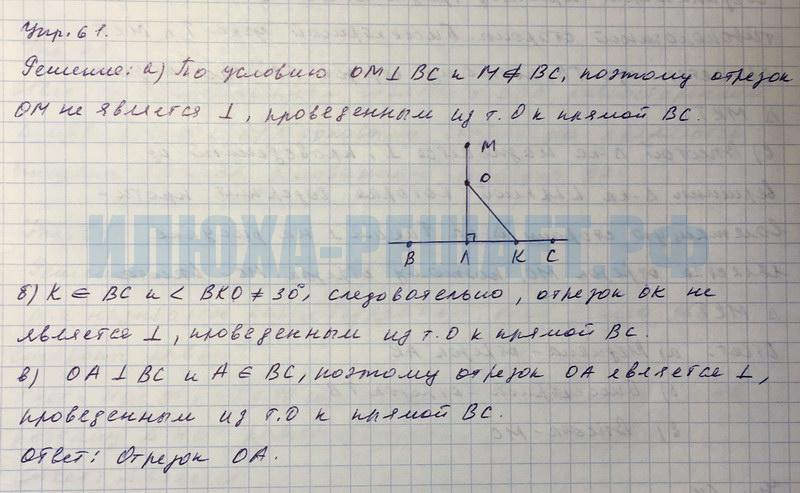 Упр. 61.
Решение: а) По условию OM⊥BC и M∉BC, поэтому отрезок
OM не является ⊥, проведенным из т. O к прямой BC.
M
O
ИЛЮХА-РЕШАЕТ.РФ
B A K C
б) K ∈ BC и < BKO ≠ 30°, следовательно, отрезок OK не
является ⊥, проведенным из т. O к прямой BC.
в) OA ⊥ BC и A ∈ BC, поэтому отрезок OA является ⊥,
проведенным из т. O к прямой BC.
Ответ: Отрезок OA.